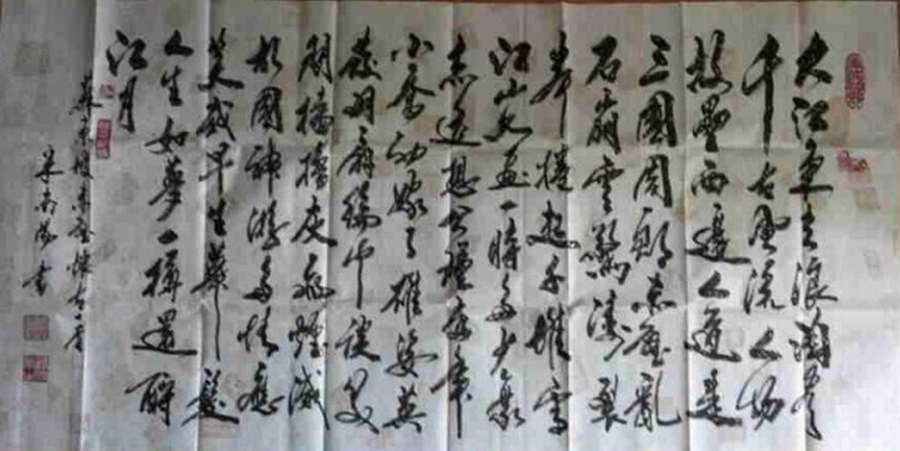 大江東去浪淘盡
千古風流人物
故壘西邊人道是
三國周郎赤壁亂
石崩雲驚濤裂
岸捲起千堆雪
江山如畫一時多少豪
杰遥想公瑾當年
小喬初嫁了雄姿英
發羽扇綸巾談笑
間檣櫓灰飛煙滅
故國神游多情應
笑我早生華髮
人生如夢一樽還酹
江月
蘇東坡赤壁懷古
書